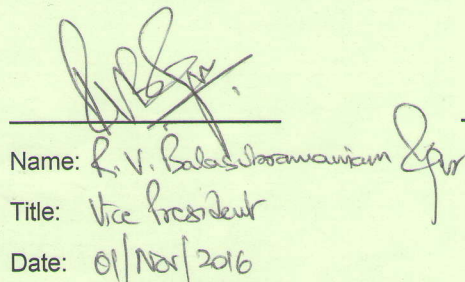 Name: R. V. Balasubramaniam Iyer
Title: Vice President
Date: 01/Nov/2016